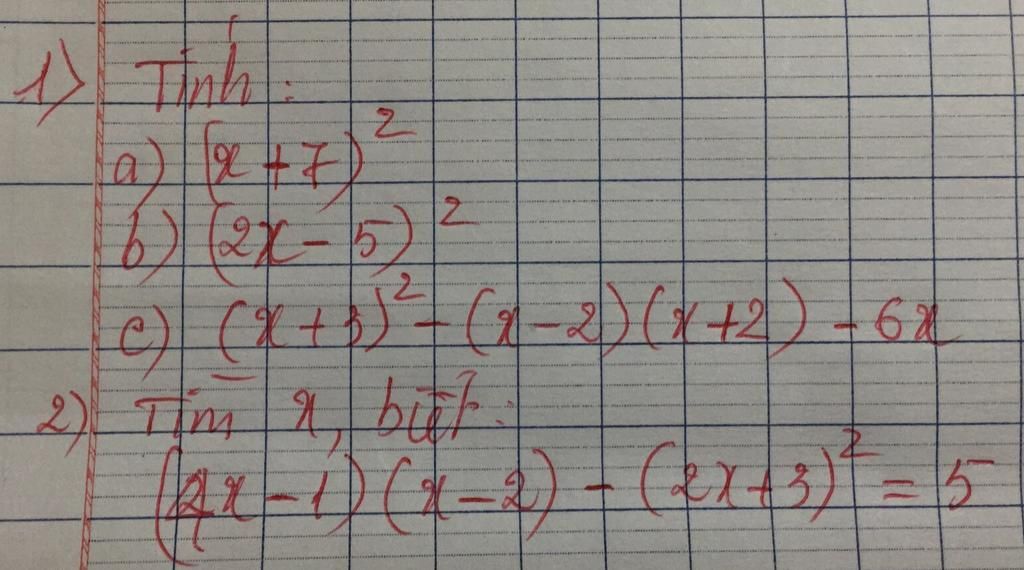 1) Tính :
a) (x + 7)²
b) (2x - 5)²
c) (x + 3)² - (x - 2)(x + 2) - 6x
2) Tìm x, biết :
(4x - 1)(x - 2) - (2x + 3)² = 5